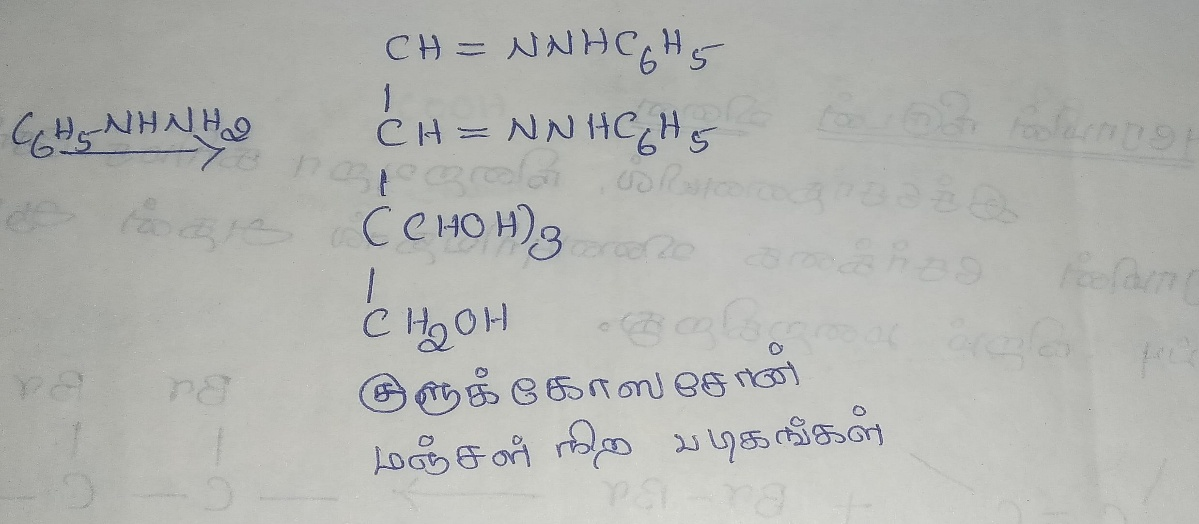 CH = NNHC₆H₅
|
C₆H₅NHNH₂ → CH = NNHC₆H₅
|
(CHOH)₃
|
CH₂OH
குளுக்கோஸசோன்
மஞ்சள் நிற படிகங்கள்